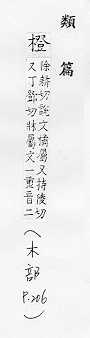 類篇
橙
除耕切說文橘屬又持陵切
又丁鄧切牀屬文一重音二
(木部
P.206)